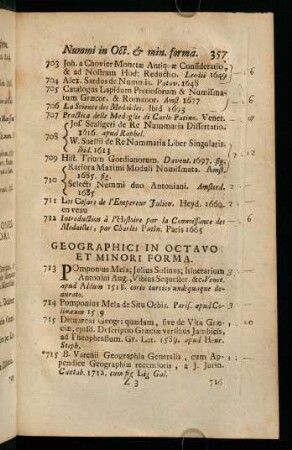 Nummi in Oct. & min. forma. 357
703 Joh. a Chovier Monetæ Antiquæ Consideratio,
& ad Nostram Hod: Reductio. Leodii 1649
704 Alex. Sardus de Nummis. Patav. 1648
705 Catalogus Lapidum Pretiosorum & Numismatum
Græcor. & Romanor. Amst 1677
706 La Science des Medailles. Ibid 1693
707 Practica delle Medaglie di Carlo Patino. Venet.
708 Jos. Scaligeri de Re Nummaria Dissertatio.
1616. apud Raphel.
W. Snellii de Re Nummaria Liber Singularis.
Ibid. 1613
709 Hist. Trium Gordianorum. Davent. 1697. fig.
710 Rariora Maximi Moduli Numismata. Amst.
1685. fig.
Selecti Nummi duo Antoniani. Amsterd.
1685
711 Les Cesars de l'Empereur Julien. Heyd. 1660.
en veau
712 Introduction à l'Histoire par la Connoissance des
Medailles, par Charles Patin. Paris 1665
GEOGRAPHICI IN OCTAVO
ET MINORI FORMA.
713 Pomponius Mela; Julius Solinus; Itinerarium
Antonini Aug., Vibius Sequester. &c. Venet.
apud Aldum 1518. orio turcico undequaque deaurato.
714 Pomponius Mela de Situ Orbis. Paris. apud Colinæum
1539
715 Dicæarchi Geogr: quædam, sive de Vita Græciæ,
ejusd. Descriptio Græciæ versibus Jambicis,
ad Theophrastum. Gr. Lat. 1589. apud Henr.
Steph.
715 B. Varenii Geographia Generalis, cum Appendice
Geographia recentioris, a J. Jurin.
Cantab. 1712. cum fig Lig Gal.
Z 3 716